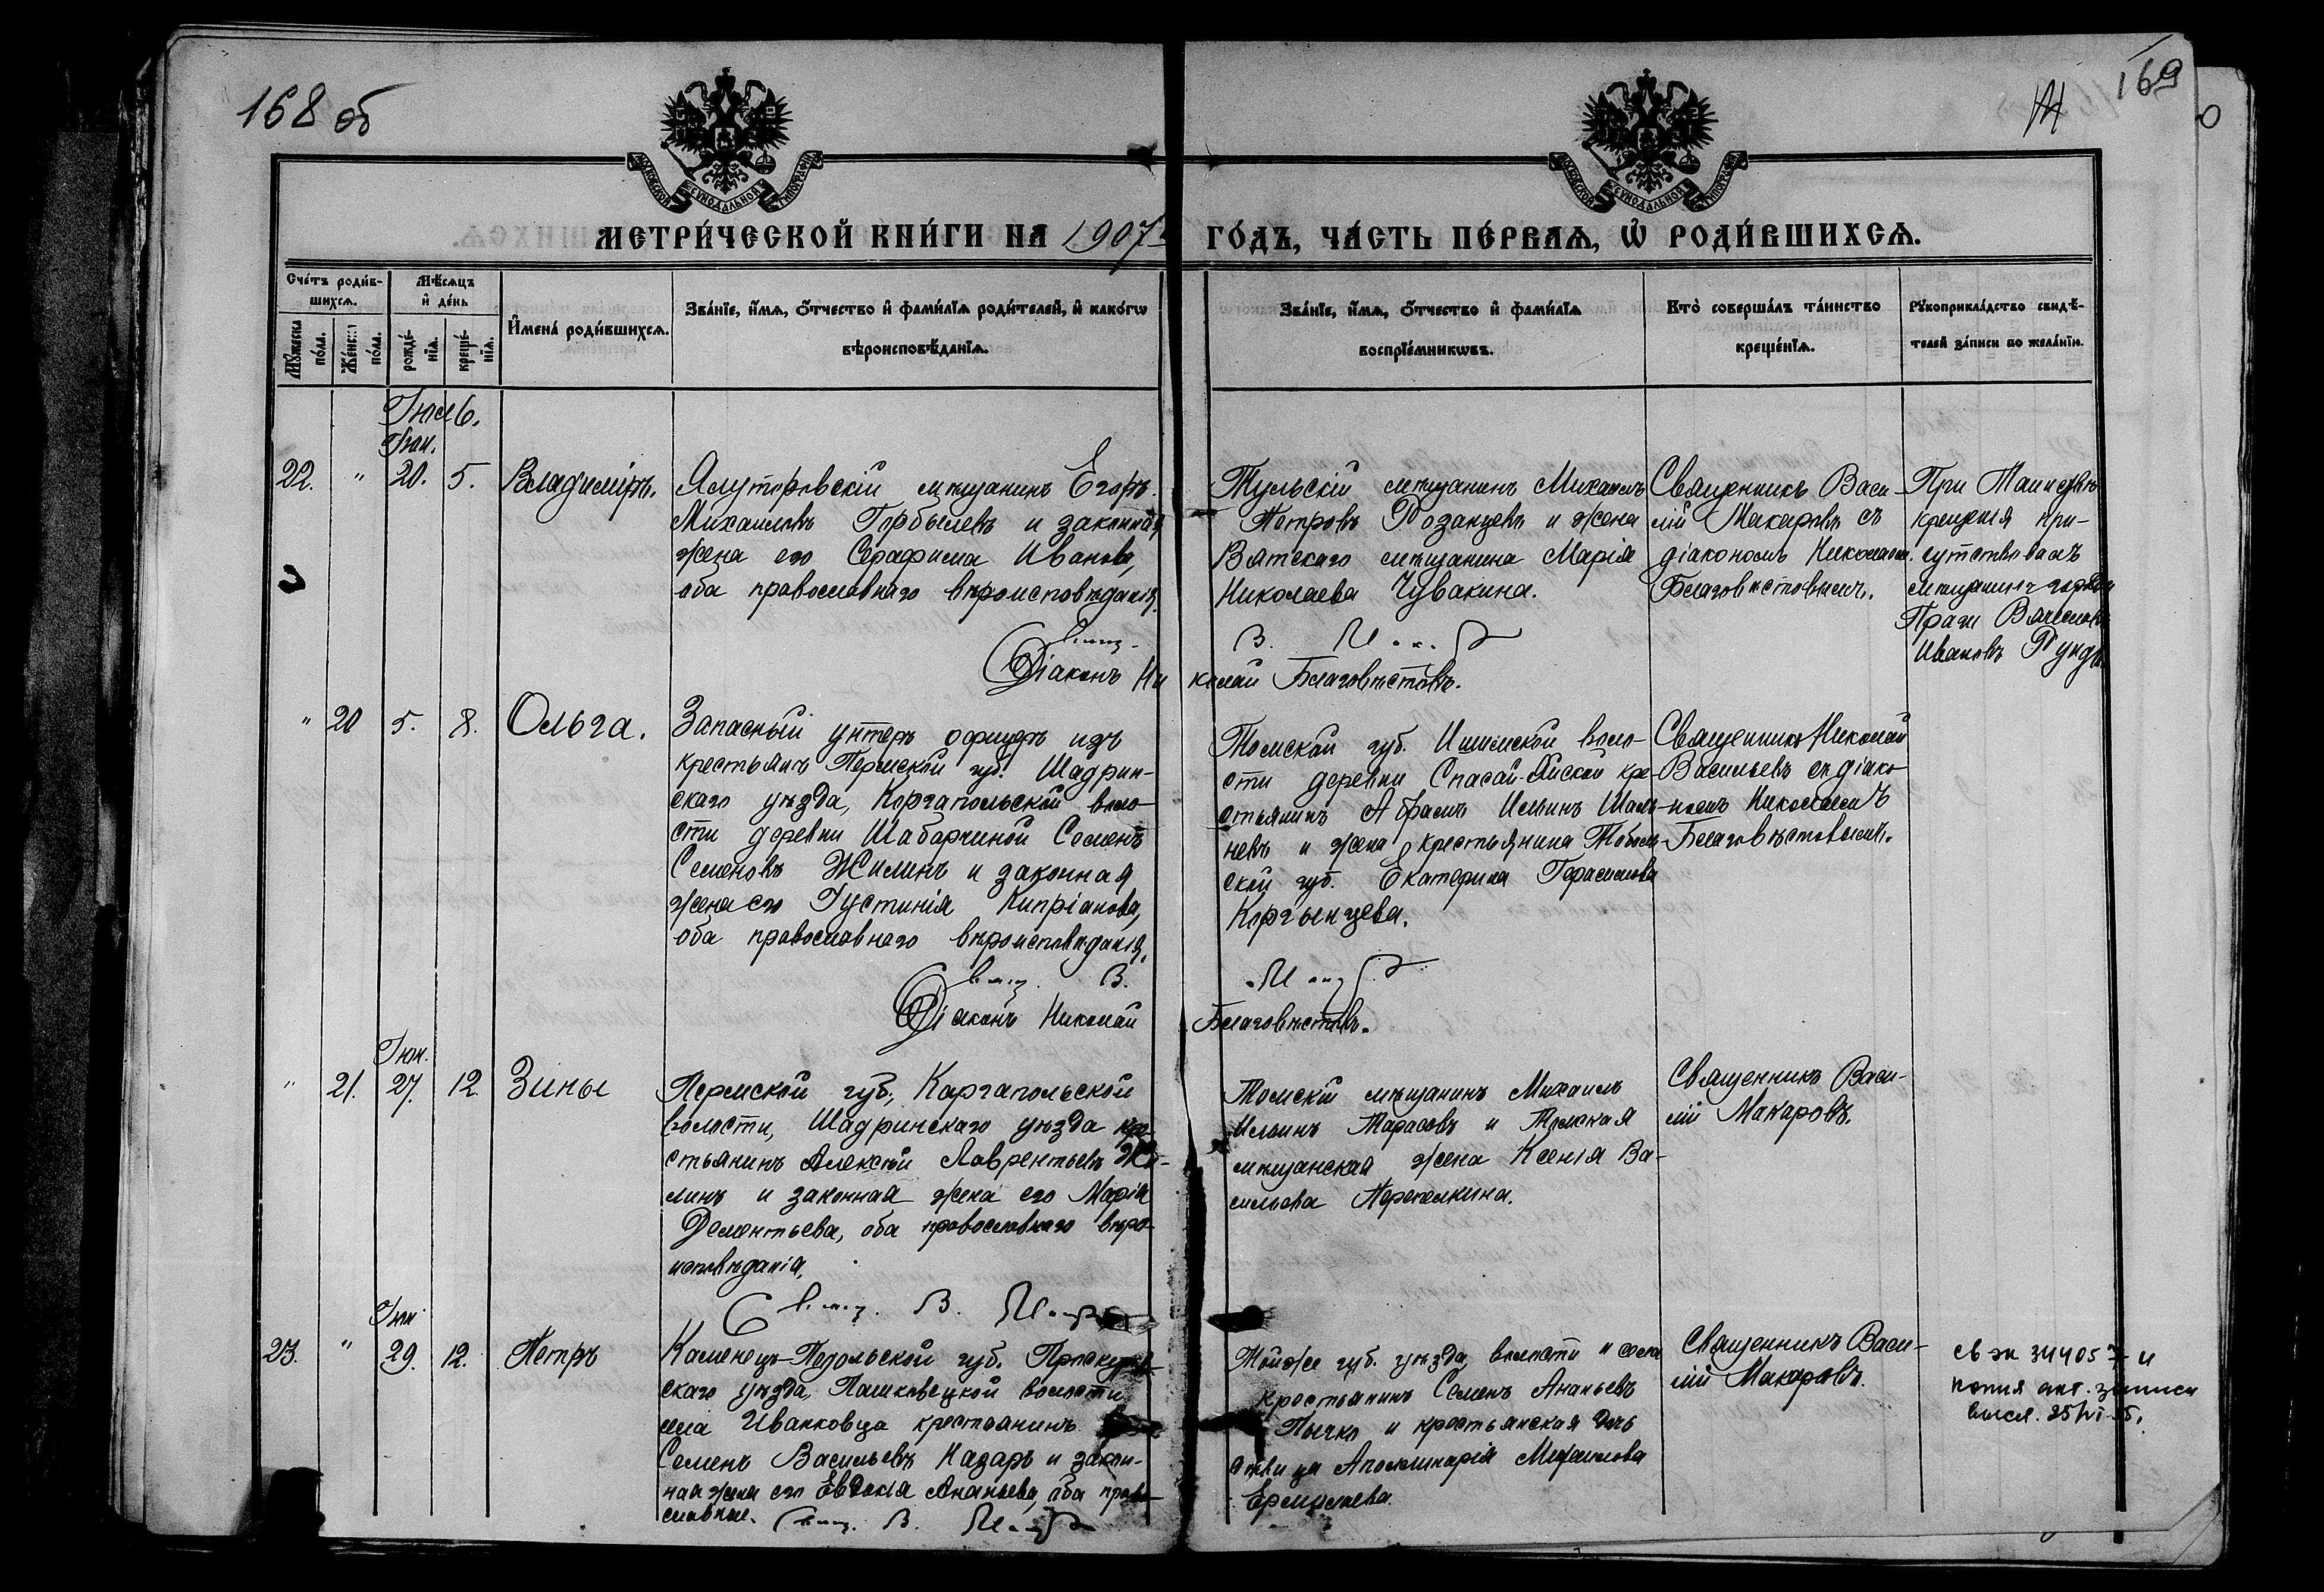 168 об
169
МОСКОВСКОЙ СѴНОДАЛЬНОЙ ТИПОГРАФІИ
МОСКОВСКОЙ СѴНОДАЛЬНОЙ ТИПОГРАФІИ
МЕТРИ́ЧЕСКОЙ КНИ́ГИ НА 1907
ГО́ДЪ, ЧА́СТЬ ПЕ́РВАѦ, Ѡ҆ РОДИ́ВШИХСѦ.
Сче́тъ роди́в-
шихсѧ.
Мѣ́сѧцъ
и҆ де́нь
Мꙋ́жеска
по́ла.
Же́нска
по́ла.
рожде́-
нїѧ.
креще́-
нїѧ.
И҆мена̀ роди́вшихсѧ.
Зва́нїе, и҆́мѧ, ѻ҆́тчество и҆ фами́лїѧ роди́телей, и҆ како́гѡ
вѣроисповѣ́данїѧ.
Зва́нїе, и҆́мѧ, ѻ҆́тчество и҆ фами́лїѧ
воспрїе́мникѡвъ.
Кто̀ соверша́лъ та́инство
креще́нїѧ.
Рꙋкоприкла́дство свидѣ́-
телей за́писи по жела́нїю.
Іюн.
22.
"
20.
5.
Владиміръ.
Ялуторовскій мѣщанинъ Егоръ
Михаиловъ Горбылевъ и законная
жена его Серафима Иванова,
оба православнаго вѣроисповѣданія.
Діаконъ Ни
Тульскій мѣщанинъ Михаилъ
Петровъ Розанцевъ и жена
Вятскаго мѣщанина Марія
Николаева Чувакина.
колай Благовѣстовъ.
Священникъ Васи-
лій Макаровъ съ
діакономъ Николаем.
Благовѣстовымъ.
При Таинствѣ
крещенія при-
сутствовалъ
мѣщанинъ города
Праги Вячеславъ
Ивановъ
"
20
5.
8.
Ольга.
Запасный унтеръ офицеръ изъ
крестьянъ Пермской губ. Шадрин-
скаго уѣзда, Каргапольской воло-
сти деревни Шабарчиной Семенъ
Семеновъ Жилинъ и законная
жена его Іустинія Кипріанова,
оба православнаго вѣроисповѣданія,
Діаконъ Николай
Томской губ. Ишимской воло-
сти деревни Спасо-Яйской кре-
стьянинъ Абрамъ Ильинъ Шам-
невъ и жена крестьянина Тоболь-
ской губ. Екатерина Герасимова
Коргынцева.
Благовѣстовъ.
Священникъ Николай
Васильевъ съ діако-
номъ Николаемъ
Благовѣстовымъ.
Іюн.
"
21.
27.
12.
Зины
Пермской губ., Каргапольской
волости, Шадринскаго уѣзда кре-
стьянинъ Алексѣй Лаврентьевъ Жи-
линъ и законная жена его Марія
Дементьева, оба православнаго вѣро-
исповѣданія,
Свящ. В.
Томскій мѣщанинъ Михаилъ
Ильинъ Тарасовъ и Томская
мѣщанская жена Ксенія Ва-
сильева Перепелкина.
Священникъ Васи-
лій Макаровъ.
Іюн
23.
"
29.
12.
Петръ
Каменецъ-Подольской губ. Проскуров-
скаго уѣзда, Пашковецкой волости,
села Иванковца крестьянинъ
Семенъ Васильевъ Назаръ и закон-
ная жена его Евдокія Ананьева, оба право-
славные. Свящ. В.
Той же губ. уѣзда, волости и села
крестьянинъ Семенъ Ананьевъ
Пычко и крестьянская дочь
дѣвица Апполинарія Михаилова
Ермолаева.
Священникъ Васи-
лій Макаровъ.
344057 и
копия акт. записи
высл.